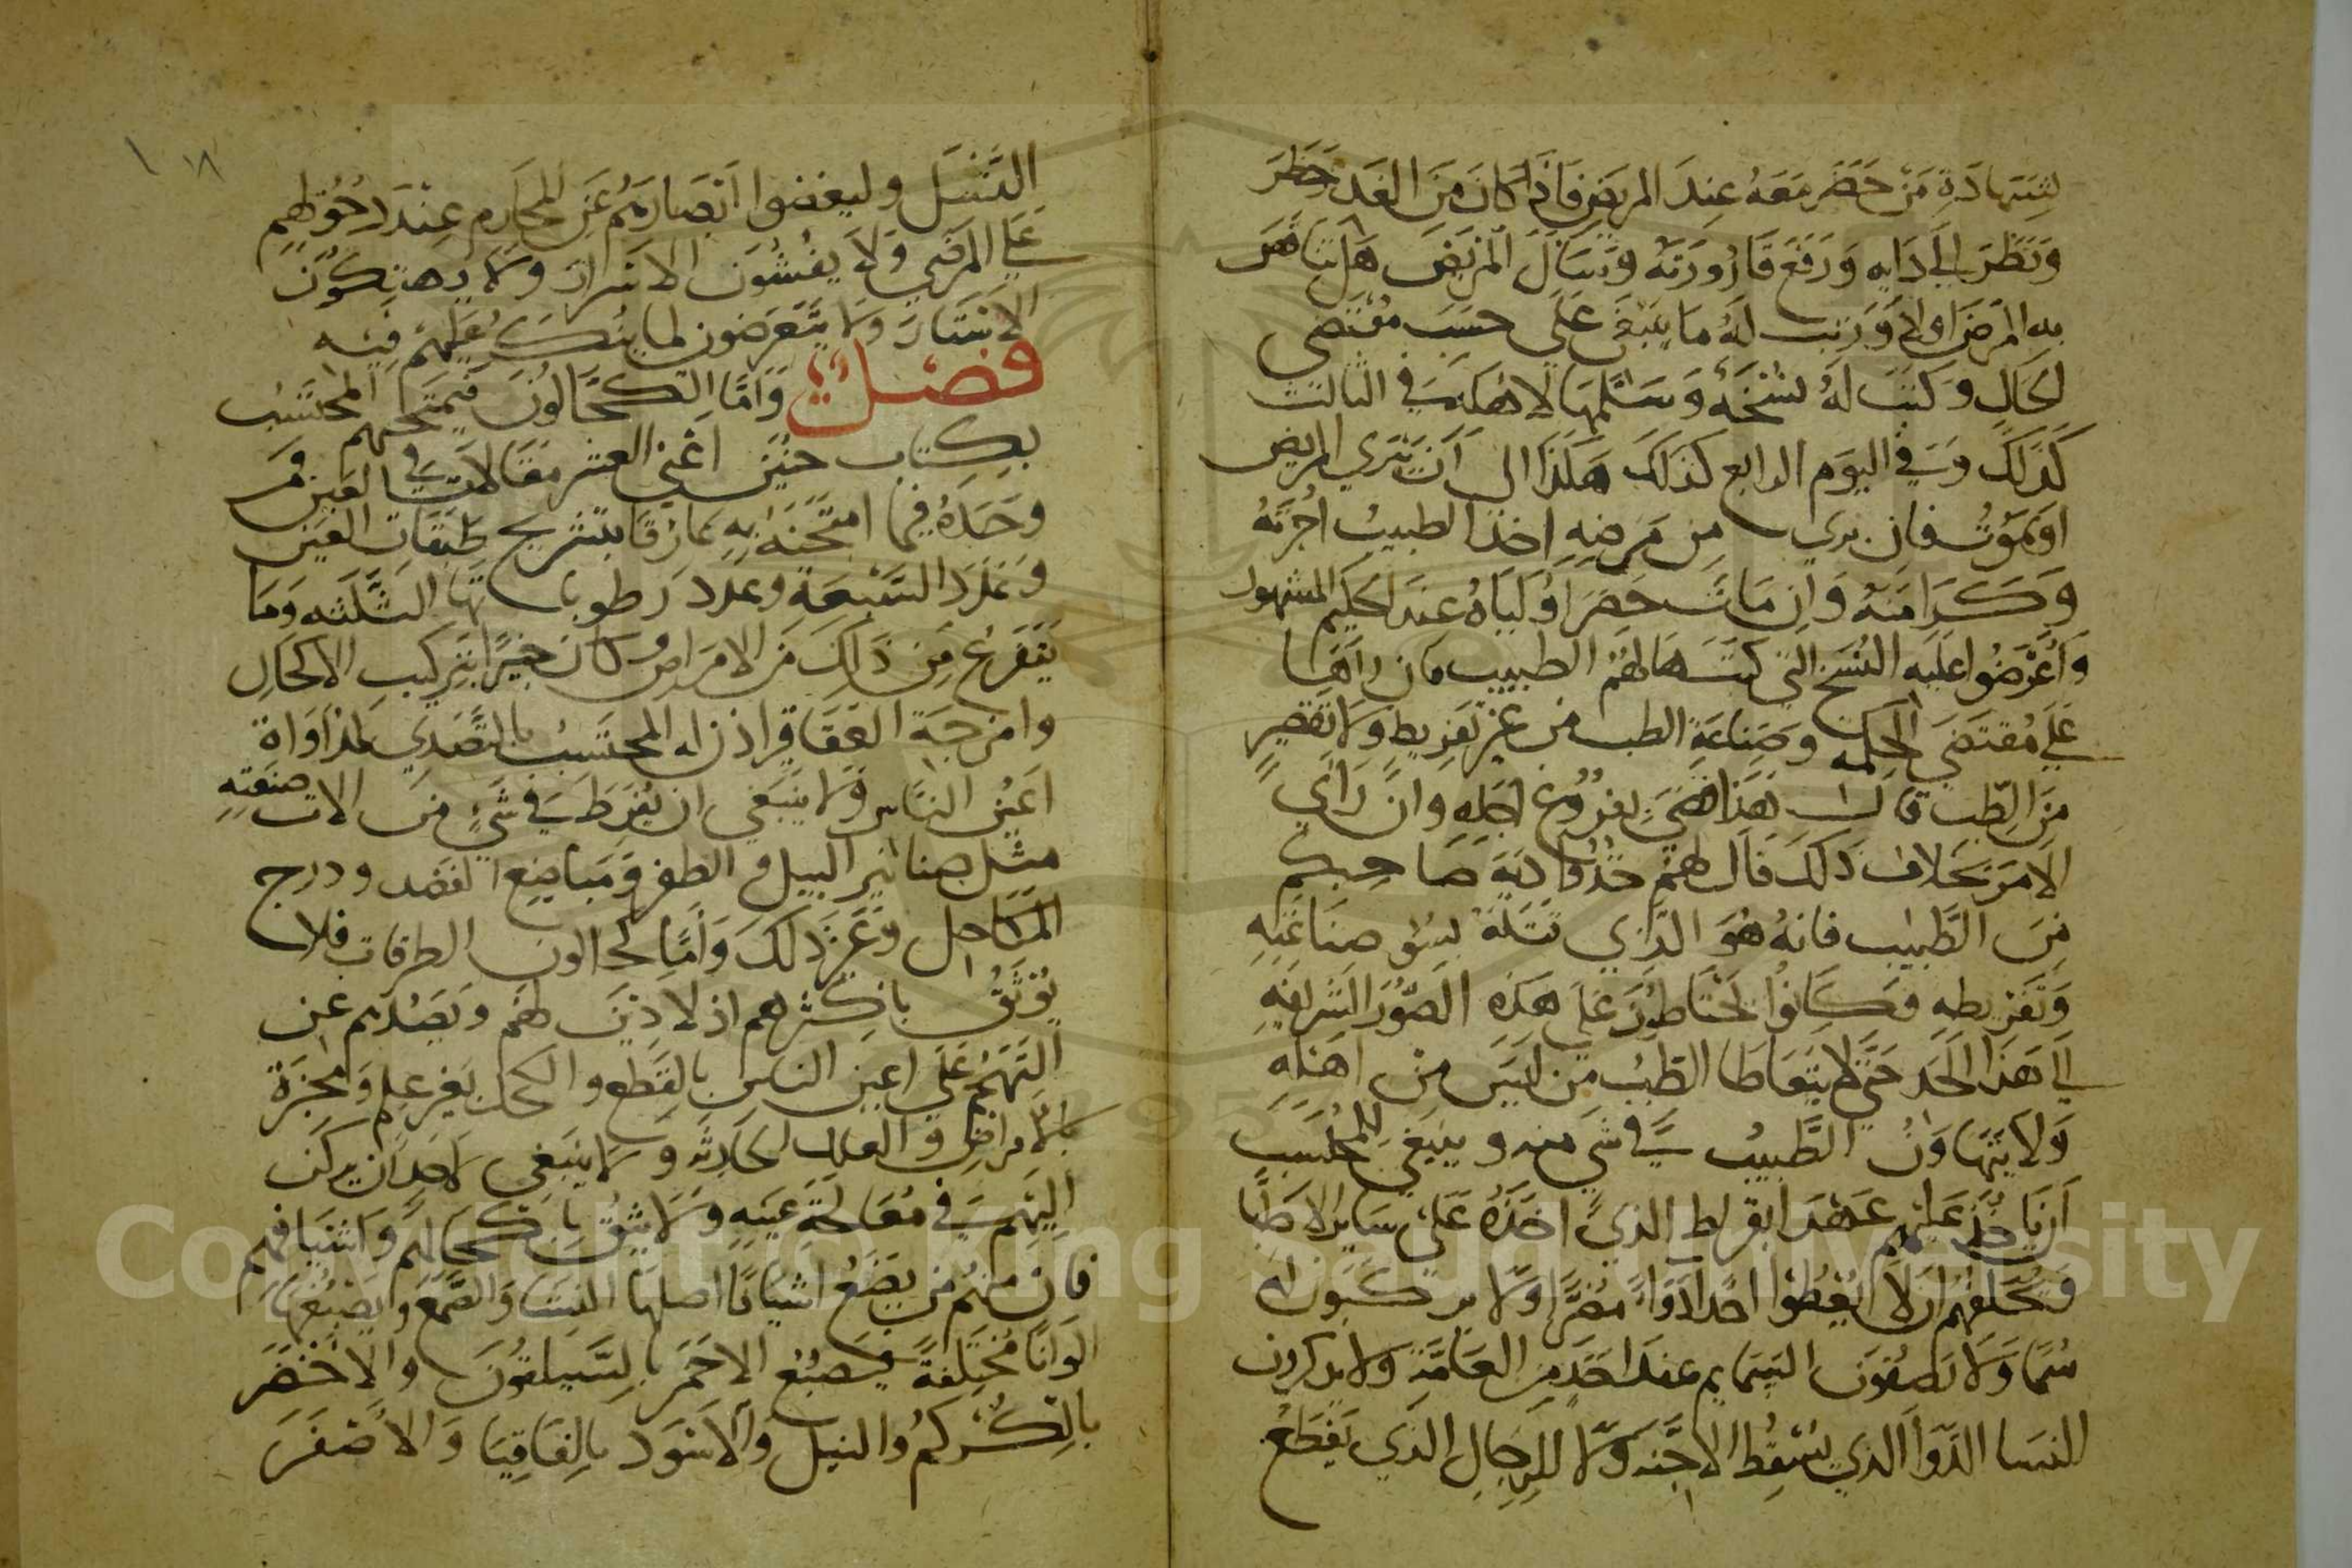 بشهادة من حضر معه عند المريض فاذا كان من الغد حضر
ونظر الي دايه ورفع قارورته وسال المريض هل تناقص
به المرض اولا ورتب له ما ينبغي علي حسب مقتضي
الحال وكتب له نسخة وسلمها لاهله وفي الثالث
كذلك وفي اليوم الرابع كذلك هكذا الي ان يبري المريض
او يموت فان بري من مرضه اخذ الطبيب اجرته
وكرامته وان مات حضر اولياه عند الحكيم المشهور
واعرضوا عليه النسخ التي كتبها لهم الطبيب فان راها
علي مقتضي الحكمه وصناعة الطب من غير تفريط ولا تقصير
من الطب قال هذا قضي بفروغ اجله وان راي
الامر بخلاف ذلك قال لهم خذوا دية صاحبكم
من الطبيب فانه هو الذي قتله بسو صناعته
وتفريطه فكانوا يحتاطون علي هذه الصور الشريفه
الي هذا الحد حتي لا يتعاطا الطب من ليس من اهله
ولا يتهاون الطبيب في شي منه وينبغي للمحتسب
ان ياخذ عليهم عهد ابقراط الذي اخذه علي ساير الاطبا
ويحلفهم ان لا يعطوا احدا دوا مضرا ولا يركبون له
سما ولا يصفون التمايم عند احد من العامة ولا يذكرون
للنسا الدوا الذي يسقط الاجنه ولا للرجال الذي يقطع
١٨
النسل وليغضوا ابصارهم عن المحارم عند دخولهم
علي المرضي ولا يفشون الاسرار ولا يهتكون
الاستار ولا يتعرضون لما ينكر عليهم فيه
فصل واما الكحالون فيمتحنهم المحتسب
بكتاب حنين اعني العشر مقالات في العين فمن
وجده فيما امتحنه به عارفا بتشريح طبقات العين
وعدد السبعة وعدد رطوباتها الثلثه وما
يتفرع من ذلك من الامراض وكان خبيرا بتركيب الاكحال
وامزجة العقاقير اذن له المحتسب بالتصدي لمداواة
اعين الناس ولا ينبغي ان يفرط في شي من الات صنعته
مثل صنانير السبل و الظفر ومباضع الفصد ودرج
المكاحل وغير ذلك واما كحالون الطرقات فلا
يوثق باكثرهم اذ لا دين لهم ويصدهم عن
التهجم علي اعين الناس بالقطع والكحل بغير علم وخبرة
بالامراض و العلل الحادثه ولا ينبغي لاحد ان يركن
اليهم في معالجة عينه ولا يثق باكحالهم واشيافهم
فان منهم من يصنع اشيافا اصلها النشا والصمغ ويصبغها
الوانا مختلفة فيصبغ الاحمر بالسيلقون والاخضر
بالكركم والنيل والاسود بالقاقيا والاصفر